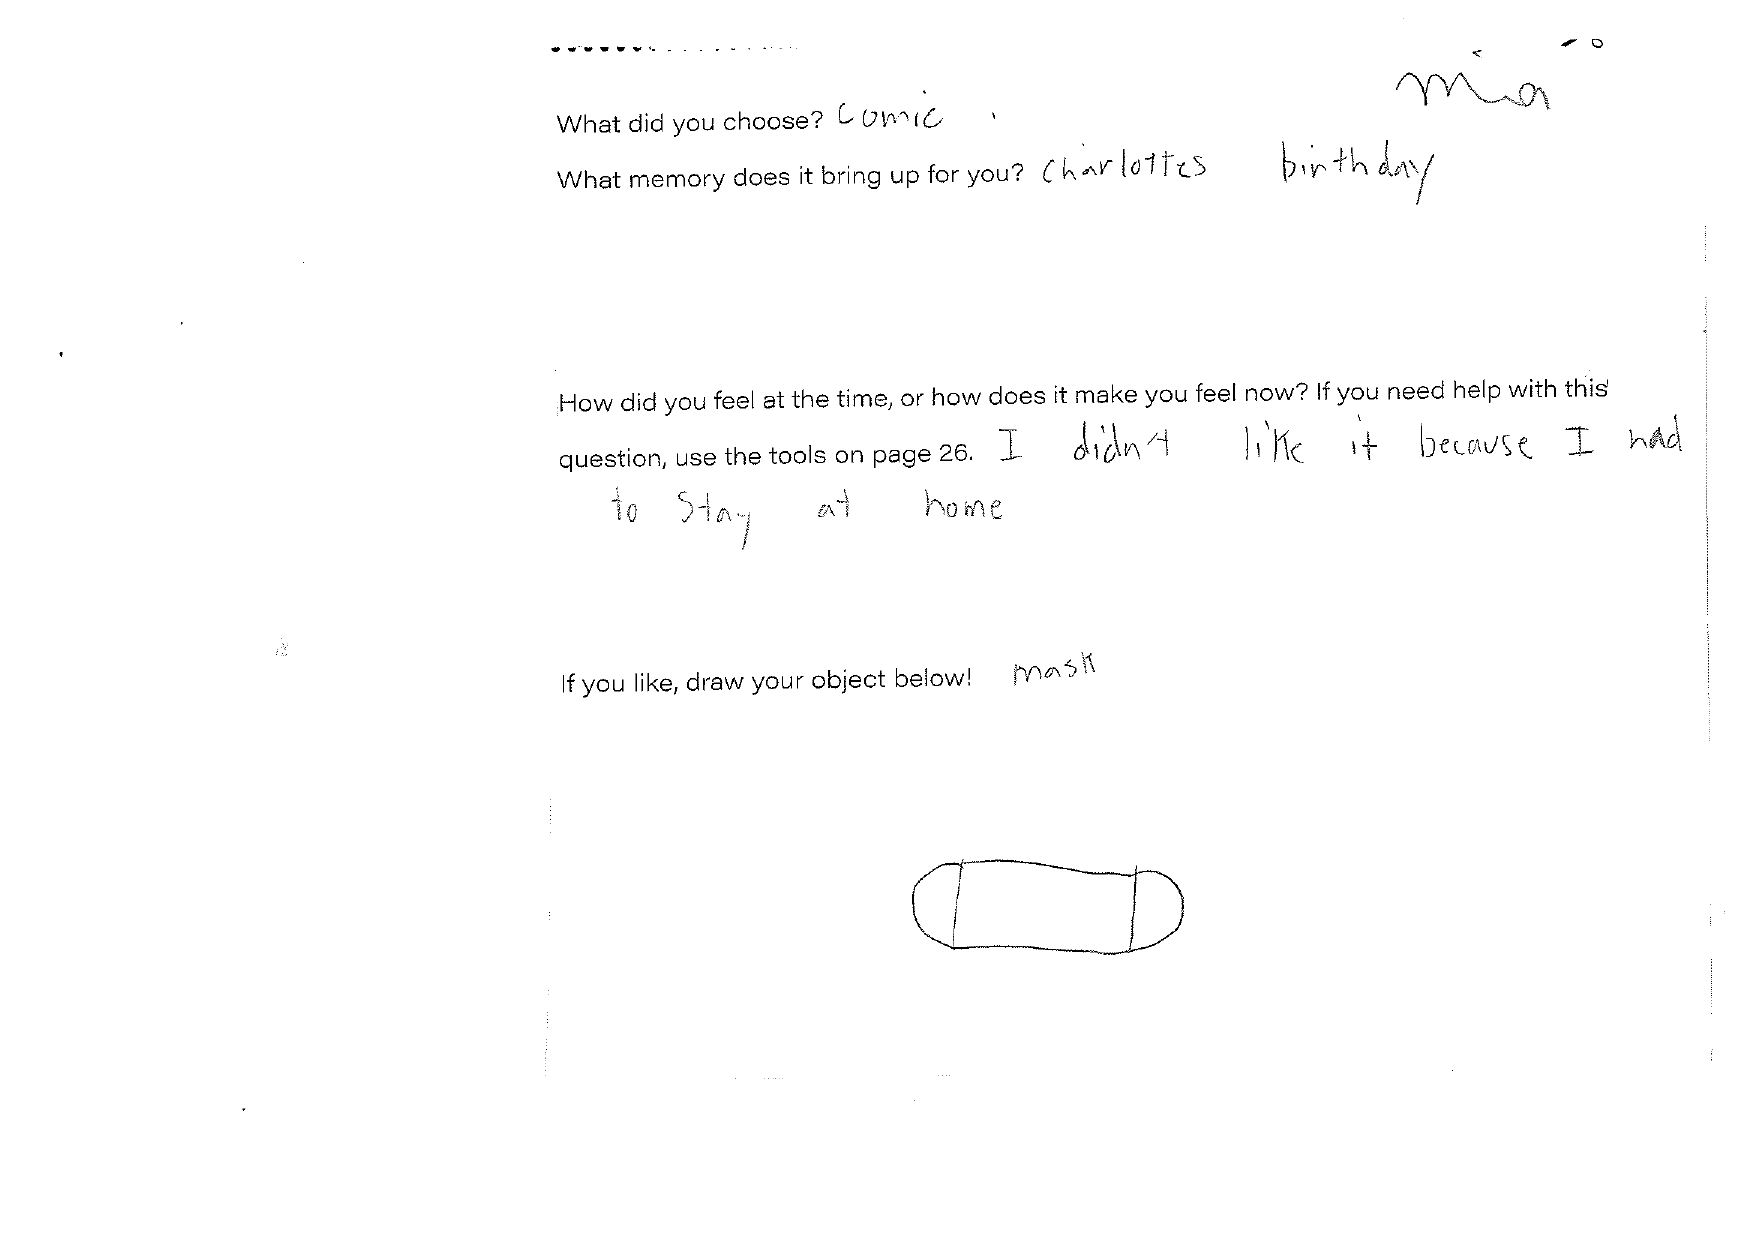 mia
What did you choose? Comic
What memory does it bring up for you? Charlottes birthday
How did you feel at the time, or how does it make you feel now? If you need help with this
question, use the tools on page 26. I didnt like it because I had
to stay at home
If you like, draw your object below! mask